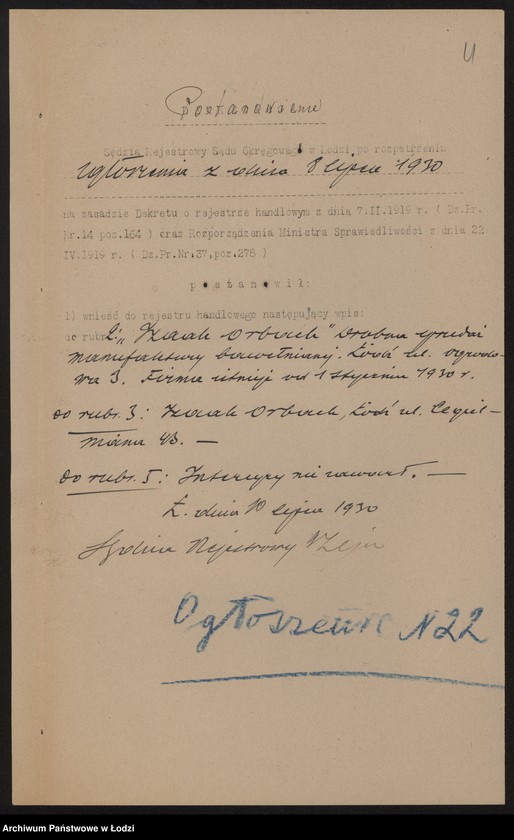 4
Postanowienie
Sędzia Rejestrowy Sądu Okręgowego w Łodzi po rozpatrzeniu
zgłoszenia z dnia 8 lipca 1930
na zasadzie Dekretu o rejestrze handlowym z dnia 7.II.1919 r. ( Dz.Pr.
Nr.14 poz.164 ) oraz Rozporządzenia Ministra Sprawiedliwości z dnia 22
IV.1919 r. ( Dz.Pr.Nr.37,poz.278 )
p o s t a n o w i ł :
1) wnieść do rejestru handlowego następujący wpis:
do rubr. 2: „Izaak Orbach" Drobna sprzedaż
manufaktury bawełnianej. Łódź ul. Ogrodo-
wa 3. Firma istnieje od 1 stycznia 1930 r.
do rubr. 3: Izaak Orbach, Łódź ul. Cegiel-
niana 43. —
do rubr. 5: Intercyzy nie zawarł. —
Ł. dnia 10 lipca 1930
Sędzia Rejestrowy
Ogłoszenie N 22
Archiwum Państwowe w Łodzi